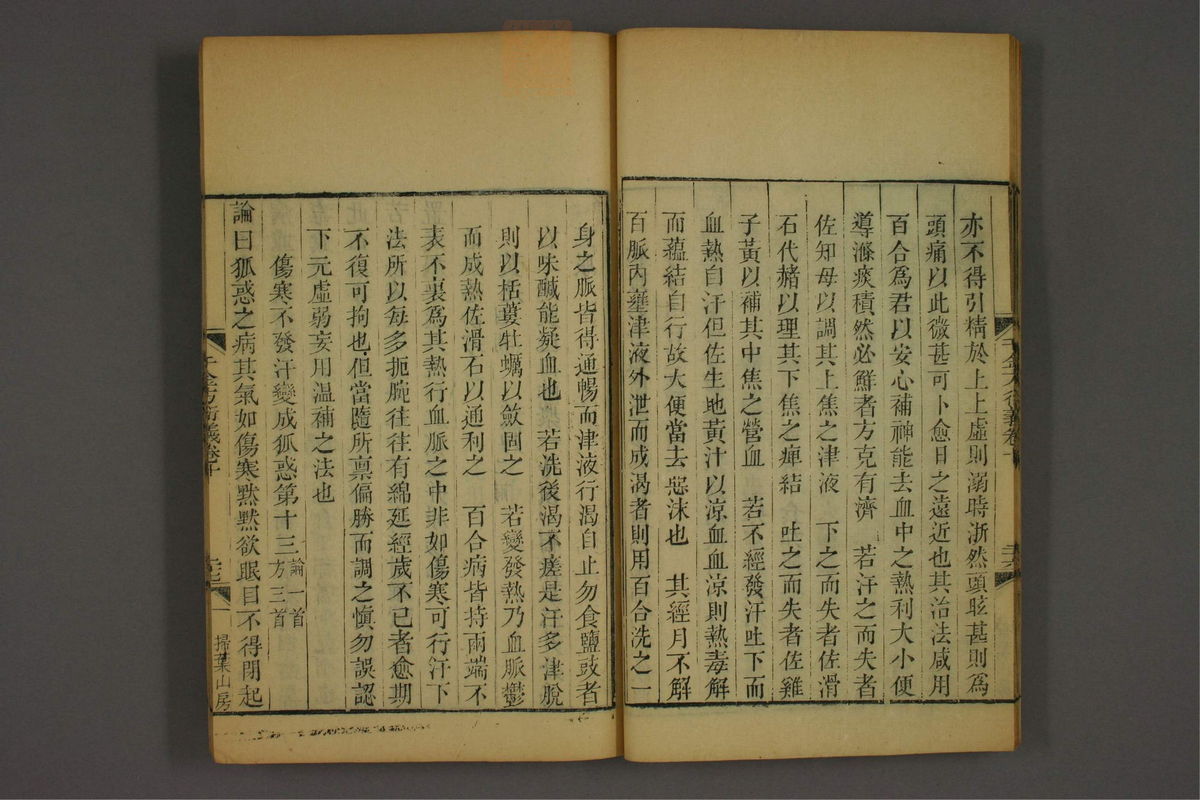 亦不得引精於上上虛則溺時淅然頭眩甚則爲
頭痛以此微甚可卜愈日之遠近也其治法咸用
百合爲君以安心補神能去血中之熱利大小便
導滌痰積然必鮮者方克有濟　若汗之而失者
佐知母以調其上焦之津液　下之而失者佐滑
石代赭以理其下焦之痺結　吐之而失者佐雞
子黃以補其中焦之營血　若不經發汗吐下而
血熱自汗但佐生地黃汁以凉血血凉則熱毒解
而蘊結自行故大便當去惡沫也　其經月不解
百脈內壅津液外泄而成渴者則用百合洗之一
千金方衍義卷十
身之脈皆得通暢而津液行渴自止勿食鹽豉者
以味鹹能凝血也　若洗後渴不瘥是汗多津脫
則以栝蔞牡蠣以斂固之　若變發熱乃血脈鬱
而成熱佐滑石以通利之　百合病皆持兩端不
表不裏爲其熱行血脈之中非如傷寒可行汗下
法所以每多扼腕往往有綿延經歲不已者愈期
不復可拘也但當隨所禀偏勝而調之慎勿誤認
下元虛弱妄用温補之法也
傷寒不發汗變成狐惑第十三論一首方三首
論曰狐惑之病其氣如傷寒黙黙欲眠目不得閉起
千金方衍義卷十
掃葉山房